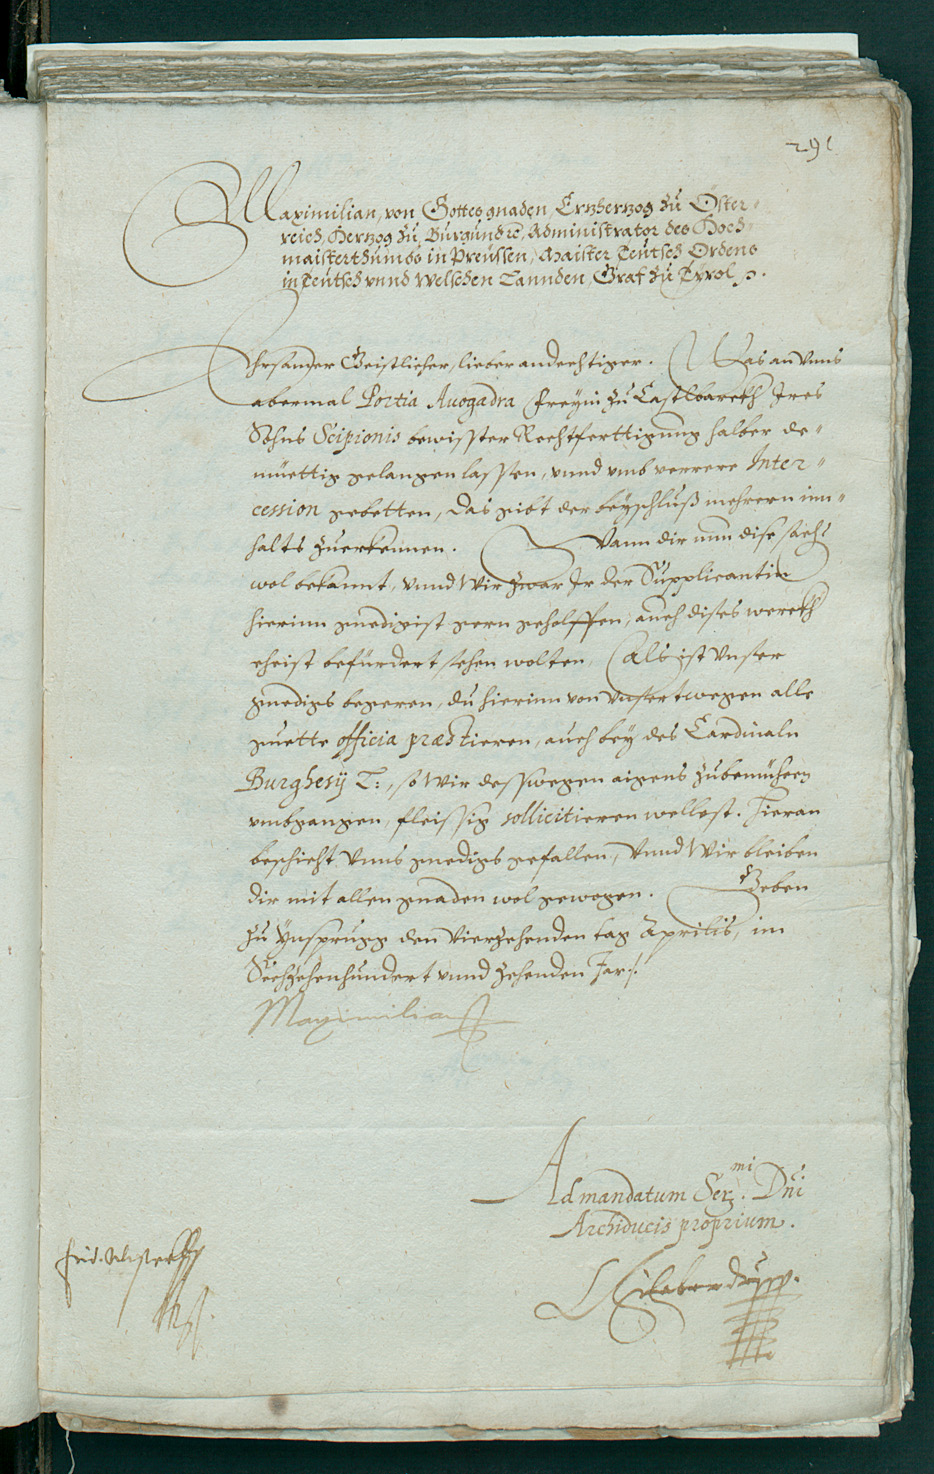 291
Maximilian, von Gottes gnaden, Ertzhertzog zu Öster-
reich, Hertzog zu Burgundt &c, Administrator des Hoch-
maisterthumbs in Preussen, Maister Teutsch Ordens
in Teutsch unnd Welschen Lannden, Graf zu Tyrol &c.
Ehrsamer Geistlicher lieber andechtiger. Was an unns
abermal Portia Auogadra Freyin zu Castlbareth Ires
Sohns Scipionis bewisster Rechtferttigung halber de-
müettig gelangen lassen, unnd umb verrere Inter-
cession gebetten, das gibt der beyschluß mehrern inn-
halts zuerkennen. Wann dir nun dise sach
wol bekannt, unnd Wir zwar Ir der Supplicantin
hierinn gnedigist gern geholffen, auch dises werckh
eheist befürdert sehen wolten, Als ist unser
gnedigs begeren, du hierinn von unsertwegen alle
guette officia præstieren, auch bey des Cardinaln
Burghesij L:, so Wir desswegen aigens zubemühen
umbgangen, fleissig sollicitieren wellest. Hieran
beschicht Unns gnedigs gefallen, Unnd Wir bleiben
dir mit allen gnaden wol gewogen. Geben
zu Ynsprugg den Vierzehenden tag Aprilis, im
Sechzehenhundert unnd zehenden Jar.
Maximilian
Ad mandatum Ser.mi Dñi
Archiducis proprium.